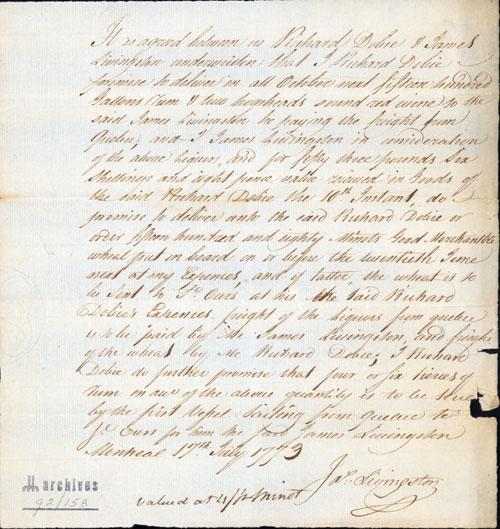 It is agreed between us Richard Dobie & James
Livingston underwritten that I Richard Dobie
promise to deliver in all October next fifteen hundred
Gallons Rum & two hogsheads sound red wine to the
said James Livingston he paying the freight from
Quebec, and I James Livingston in consideration
of the above liquors, and for fifty three pounds Six
Shillings and eight pence value received in Goods of
the said Richard Dobie the 10th Instant, do
promise to deliver unto the said Richard Dobie or
order fifteen hundred and eighty Minots Good Merchantable
wheat put on board on or before the twentieth June
next at my Expences, and if the wheat is to
be sent to St. Ours, at his the said Richard
Dobie's Expences, freight of the liquors from quebec
is to be paid by Me James Livingston, and freight
of the wheat by Me Richard Dobie; I Richard
Dobie do further promise that four or six tierces of
rum in of the above quantity is to be
by the first Vessel Sailing from Quebec to
St. Ours for him the said James Livingston
Montreal 17th July 1773
Jas. Livingston
valued at 4/ Minot
archives
92/158